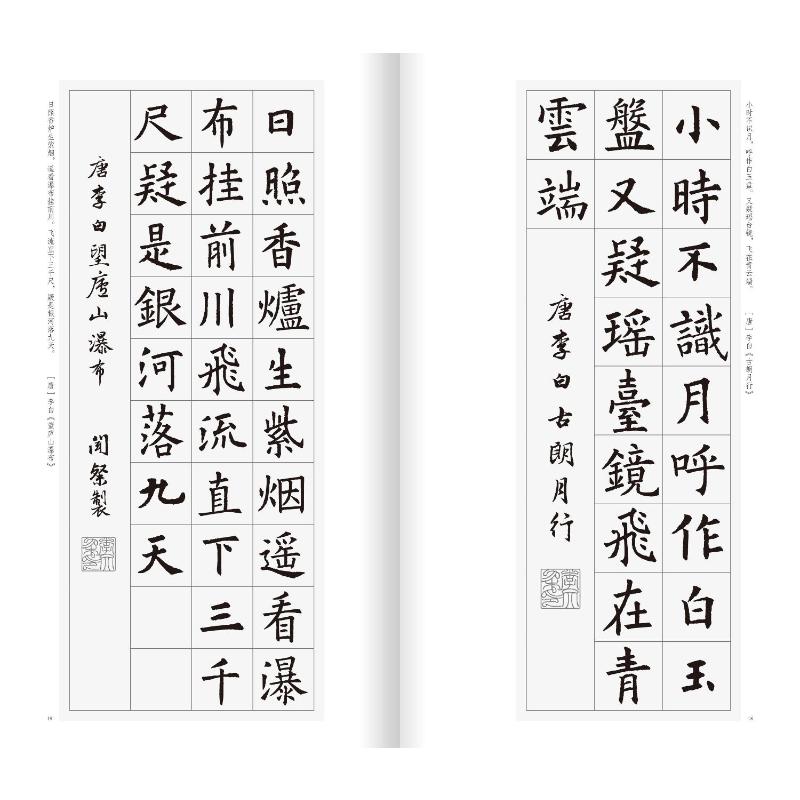 小时不识月，呼作白玉盘。又疑瑶台镜，飞在青云端。 [唐]李白《古朗月行》
小時不識月呼作白玉
盤又疑瑶臺鏡飛在青
雲端
唐李白古朗月行
日照香爐生紫烟遥看瀑
布挂前川飛流直下三千
尺疑是銀河落九天
唐李白望廬山瀑布
日照香炉生紫烟，遥看瀑布挂前川。飞流直下三千尺，疑是银河落九天。 [唐]李白《望庐山瀑布》